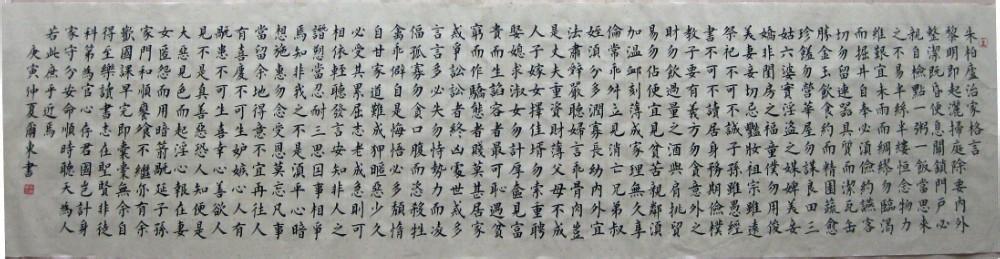 朱柏廬治家格言
黎明即起灑掃庭除要內外
整潔既昏便息關鎖門戶必
親自檢點一粥一飯當思來
處不易半絲半縷恒念物力
維艱宜未雨而綢繆勿臨渴
而掘井自奉必須儉約讌客
切勿留連器具質而潔瓦缶
勝金玉飲食約而精園蔬愈
珍饈勿營華屋勿謀良田三
姑六婆實淫盜之媒婢美妾
嬌非閨房之福童僕勿用俊
美妻妾切忌艷妝祖宗雖遠
祭祀不可不誠子孫雖愚經
書不可不讀居身務期儉樸
教子要有義方莫貪意外之
財勿飲過量之酒與肩挑貿
易勿佔便宜見貧苦親鄰須
加溫卹刻薄成家理無久享
倫常乖舛立見消亡兄弟叔
姪須分多潤寡長幼內外宜
法肅辭嚴聽婦言乖骨肉豈
是丈夫重資財薄父母不成
人子嫁女擇佳婿勿索重聘
娶媳求淑女勿計厚奩見富
貴而生諂容者最可恥遇貧
窮而作驕態者賤莫甚居家
戒爭訟訟者終凶處世戒多
言言多必失勿恃勢力而凌
偪孤寡毋貪口腹而恣殺牲
禽乖僻自是悔悟必多頹惰
自甘家道難成狎暱惡少久
必受其累屈志老成急則可
相依輕聽發言安知非人之
譖愬當忍耐三思因事相爭
焉知非我之不是須平心暗
想施惠勿念受恩莫忘凡事
當留餘地得意不宜再往人
有喜慶不可生妒嫉心人有
禍患不可生喜幸心善欲人
見不是真善惡恐人知便是
大惡見色而起淫心報在妻
女匿怨而用暗箭禍延子孫
家門和順饔飧不繼亦有餘
歡國課早完即囊橐無餘自
得至樂讀書志在聖賢非徒
科第為官心存君國豈計身
家守分安命順時聽天為人
若此庶乎近焉
庚寅仲夏肅東書